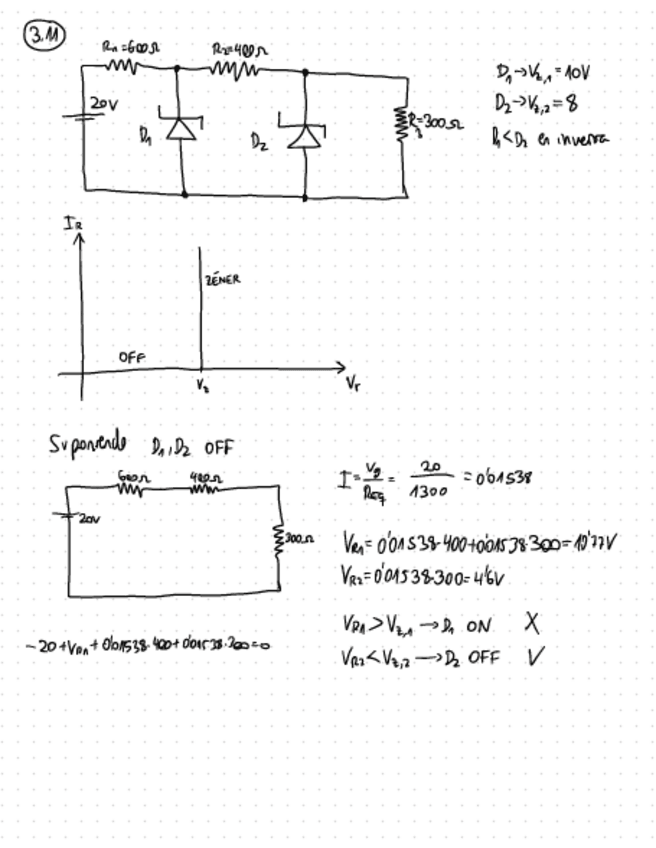 3.11
R₁=600Ω R₂=400Ω
20V
D₁
D₂
R₃=300Ω
D₁→V_{z,1}=10V
D₂→V_{z,2}=8
D₁<D₂ en inversa
I_R
ZÉNER
OFF
V_z
V_r
Suponiendo D₁,D₂ OFF
600Ω 400Ω
20V
300Ω
I=V_g/R_{eq}=20/1300=0'01538
V_{R1}=0'01538·400+0'01538·300=10'77V
V_{R2}=0'01538·300=4'6V
V_{R1}>V_{z,1}→D₁ ON X
V_{R2}<V_{z,2}→D₂ OFF V
-20+V_{R1}+0'01538·400+0'01538·300=0